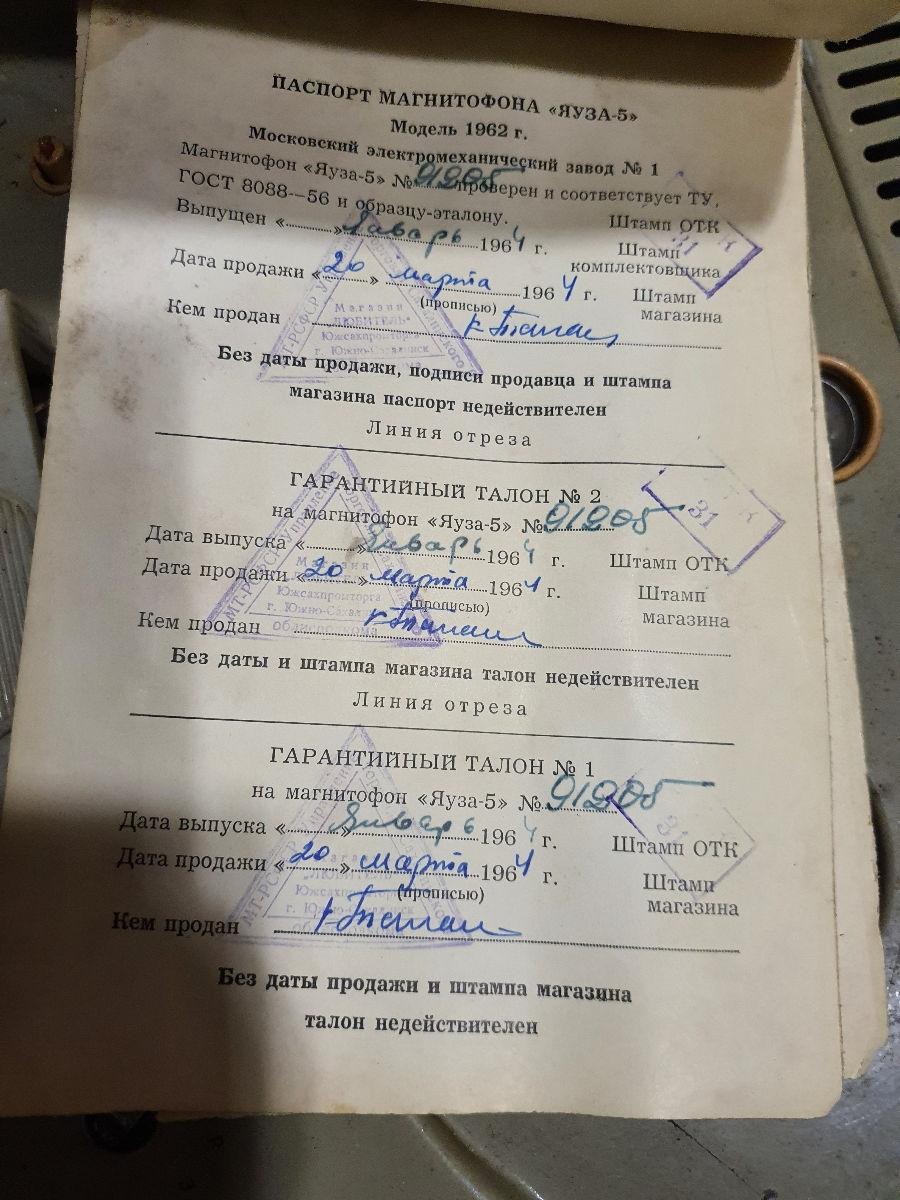 ПАСПОРТ МАГНИТОФОНА «ЯУЗА-5»
Модель 1962 г.
Московский электромеханический завод № 1
Магнитофон «Яуза-5» № 91205 проверен и соответствует ТУ,
ГОСТ 8088—56 и образцу-эталону.
Штамп ОТК
31
Выпущен « » Январь 1964 г.
Штамп
комплектовщика
Дата продажи «20» марта 1964 г.
(прописью)
Штамп
магазина
Кем продан
Магазин
„ЛЮБИТЕЛЬ“
Южсахпромторга
г. Южно-Сахалинск
Без даты продажи, подписи продавца и штампа
магазина паспорт недействителен
Линия отреза
ГАРАНТИЙНЫЙ ТАЛОН № 2
на магнитофон «Яуза-5» № 91205
31
Дата выпуска « » Январь 1964 г.
Штамп ОТК
Дата продажи «20» марта 1964 г.
(прописью)
Штамп
магазина
Кем продан
Южсахпромторга
Без даты и штампа магазина талон недействителен
Линия отреза
ГАРАНТИЙНЫЙ ТАЛОН № 1
на магнитофон «Яуза-5» № 91205
31
Дата выпуска « » Январь 1964 г.
Штамп ОТК
Дата продажи «20» марта 1964 г.
(прописью)
Штамп
магазина
Кем продан
Без даты продажи и штампа магазина
талон недействителен